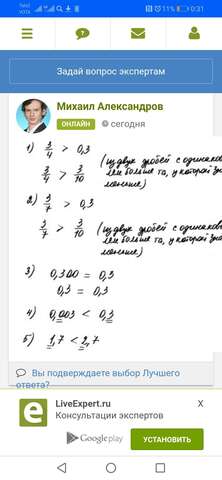 Tele2
VOTA
11%
0:31
Задай вопрос экспертам
Михаил Александров
ОНЛАЙН
сегодня
1) 3/4 > 0,3
3/4 > 3/10 (из двух дробей с одинаков
лем больше та, у которой зна
меньше)
2) 3/7 > 0,3
3/7 > 3/10 (из двух дробей с одинаков
лем больше та, у которой зна
меньше)
3) 0,300 = 0,3
0,3 = 0,3
4) 0,003 < 0,3
5) 1,7 < 2,7
Вы подтверждаете выбор Лучшего
ответа?
LiveExpert.ru
Консультации экспертов
Google play
УСТАНОВИТЬ